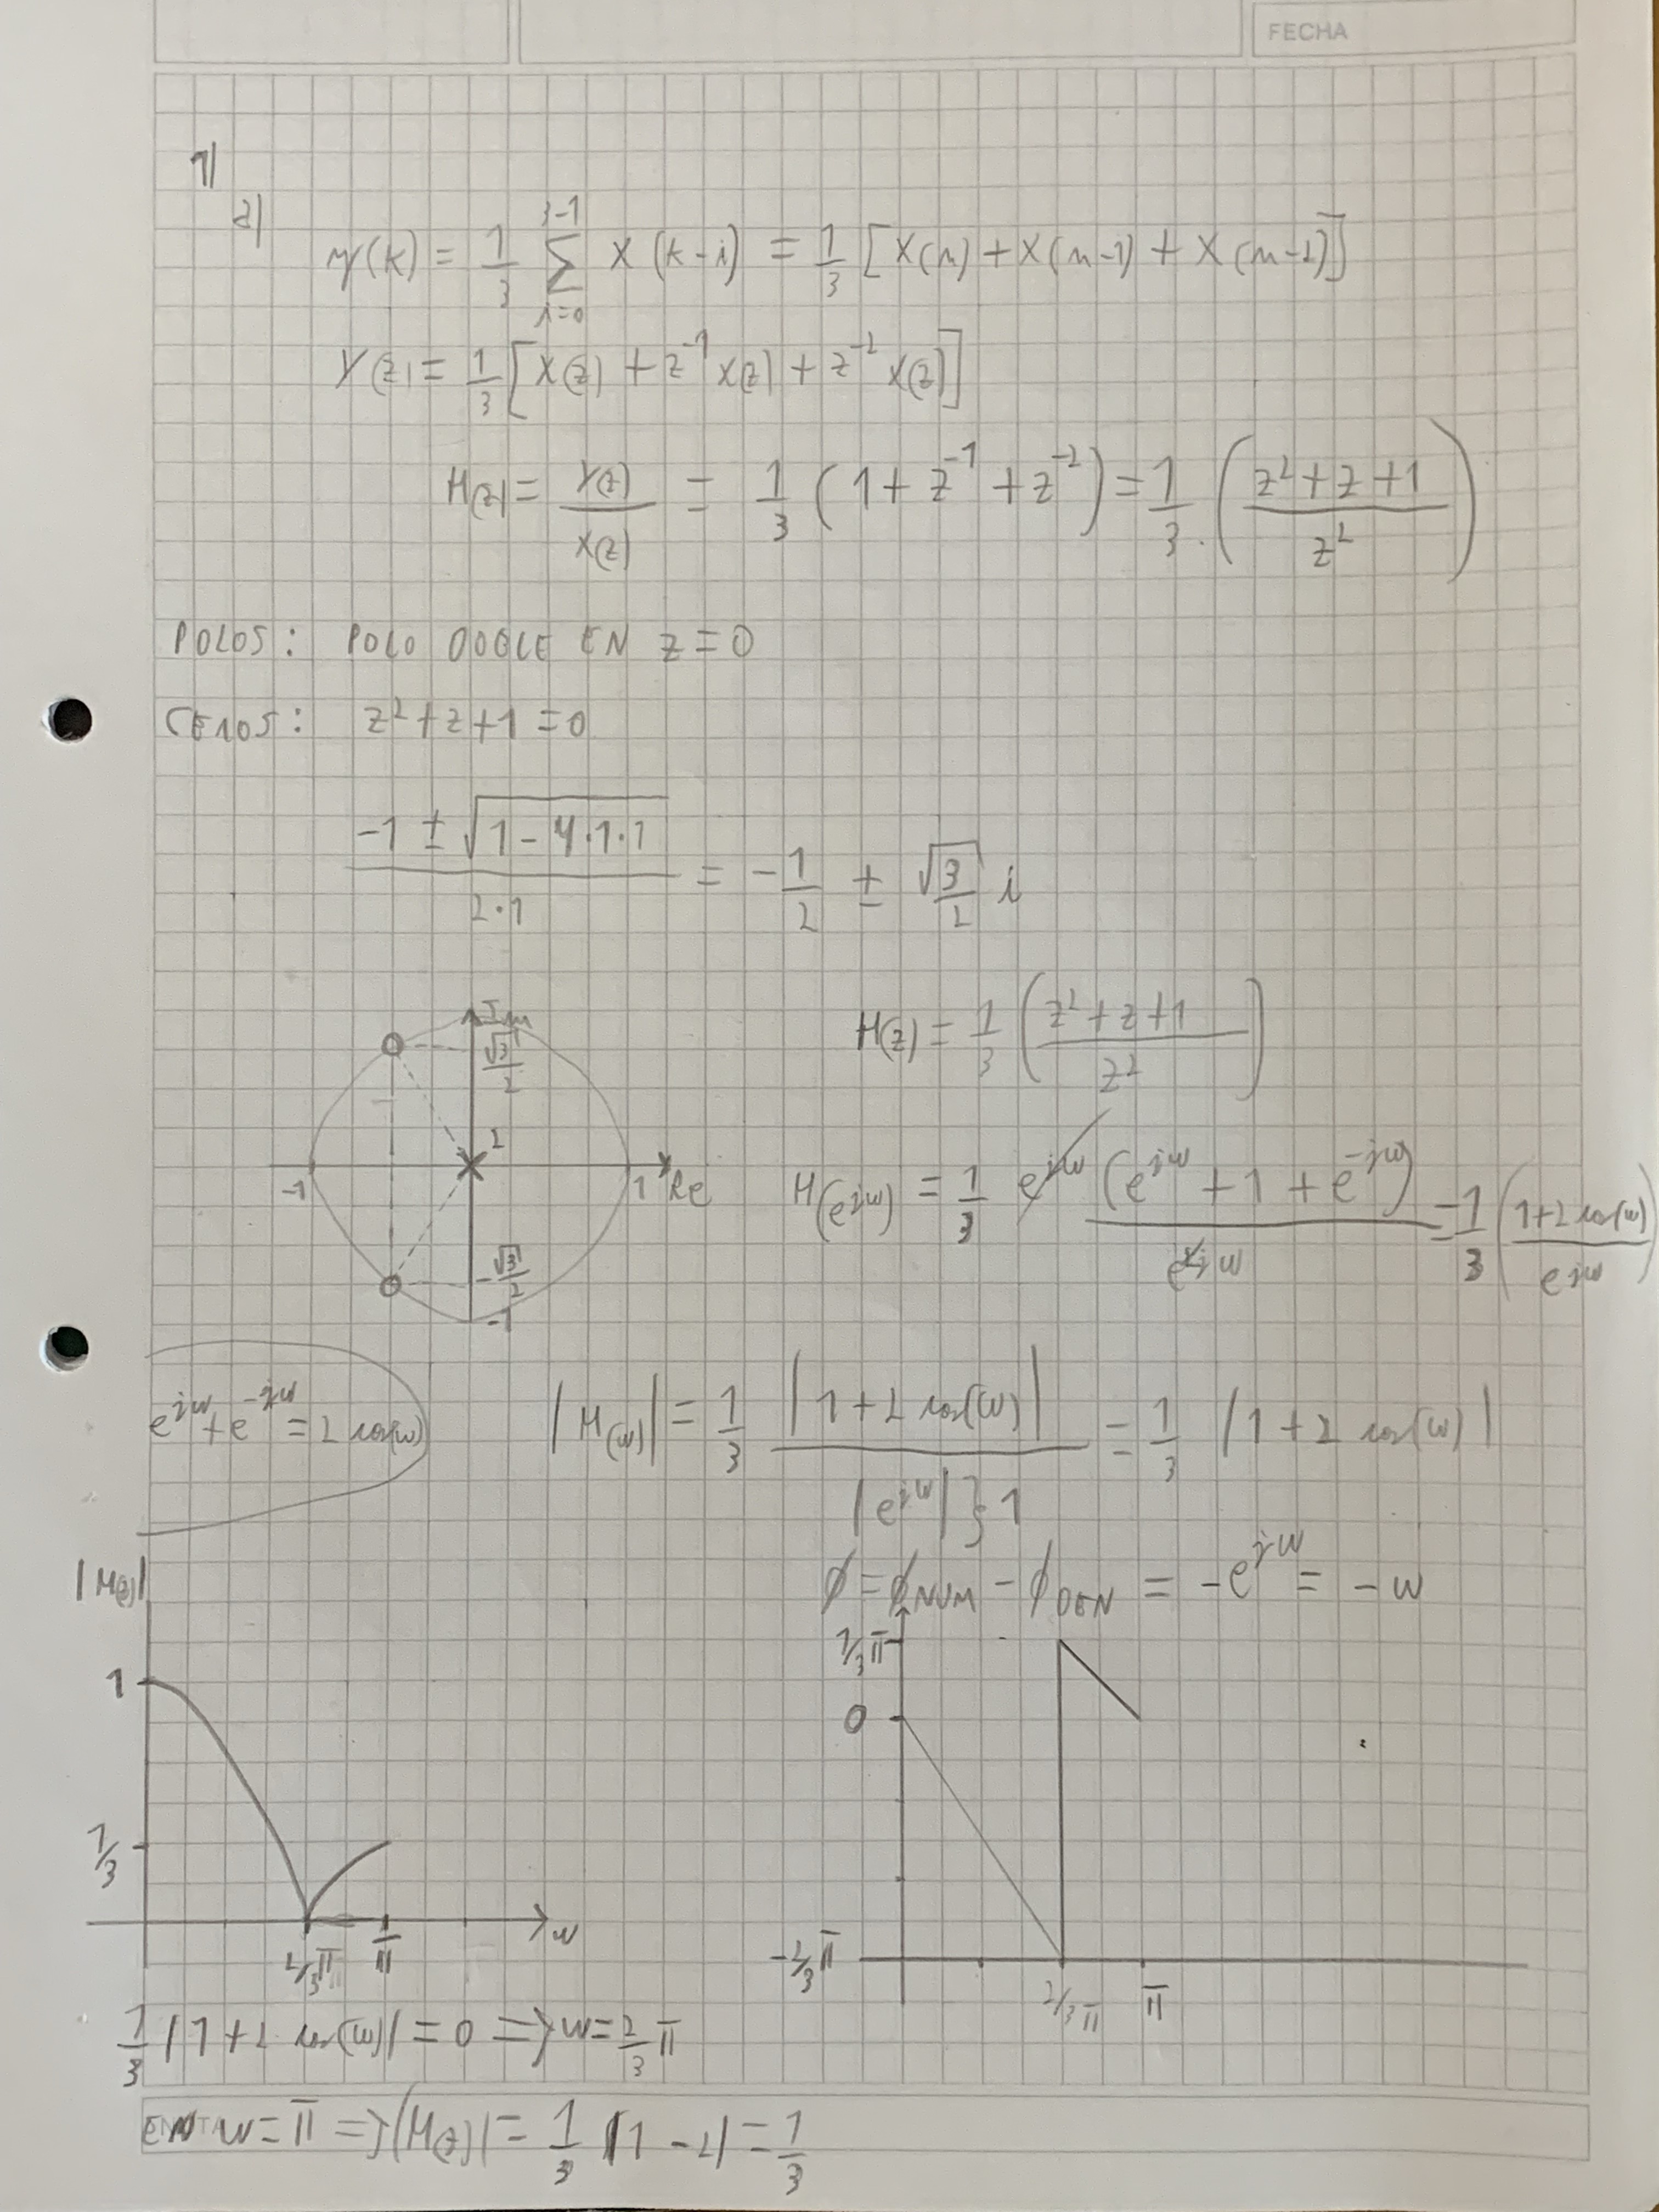 FECHA
1)
a)
y(k) = 1/3 ∑_{i=0}^{3-1} x(k-i) = 1/3 [x(n) + x(n-1) + x(n-2)]
Y(z) = 1/3 [X(z) + z^{-1} X(z) + z^{-2} X(z)]
H(z) = Y(z)/X(z) = 1/3 (1 + z^{-1} + z^{-2}) = 1/3 · ((z² + z + 1)/z²)
POLOS: POLO DOBLE EN z = 0
CEROS: z² + z + 1 = 0
(-1 ± √(1 - 4·1·1))/(2·1) = -1/2 ± √3/2 i
Im
√3/2
2
-1
1
Re
-√3/2
-1
H(z) = 1/3 ((z² + z + 1)/z²)
H(e^{jω}) = 1/3 e^{jω} (e^{jω} + 1 + e^{-jω})/e^{2jω} = 1/3 ((1 + 2 cos(ω))/e^{jω})
e^{jω} + e^{-jω} = 2 cos(ω)
|H(ω)| = 1/3 |1 + 2 cos(ω)|/|e^{jω}|}1 = 1/3 |1 + 2 cos(ω)|
φ = φNUM - φDEN = -e^{jω} = -ω
|H(z)|
1
1/3
2/3 π
π
ω
1/3 π
0
-2/3 π
2/3 π
π
1/3 |1 + 2 cos(ω)| = 0 => ω = 2/3 π
EN ω = π => |H(z)| = 1/3 |1 - 2| = 1/3